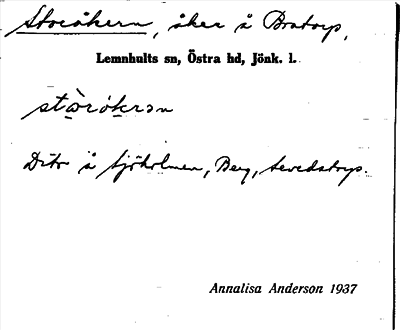 Storåkern, åker å Bratorp,
Lemnhults sn, Östra hd, Jönk. l.
stòrókrən
Dito å Sjöholmen, Berg, Sevedstorp.
Annalisa Anderson 1937